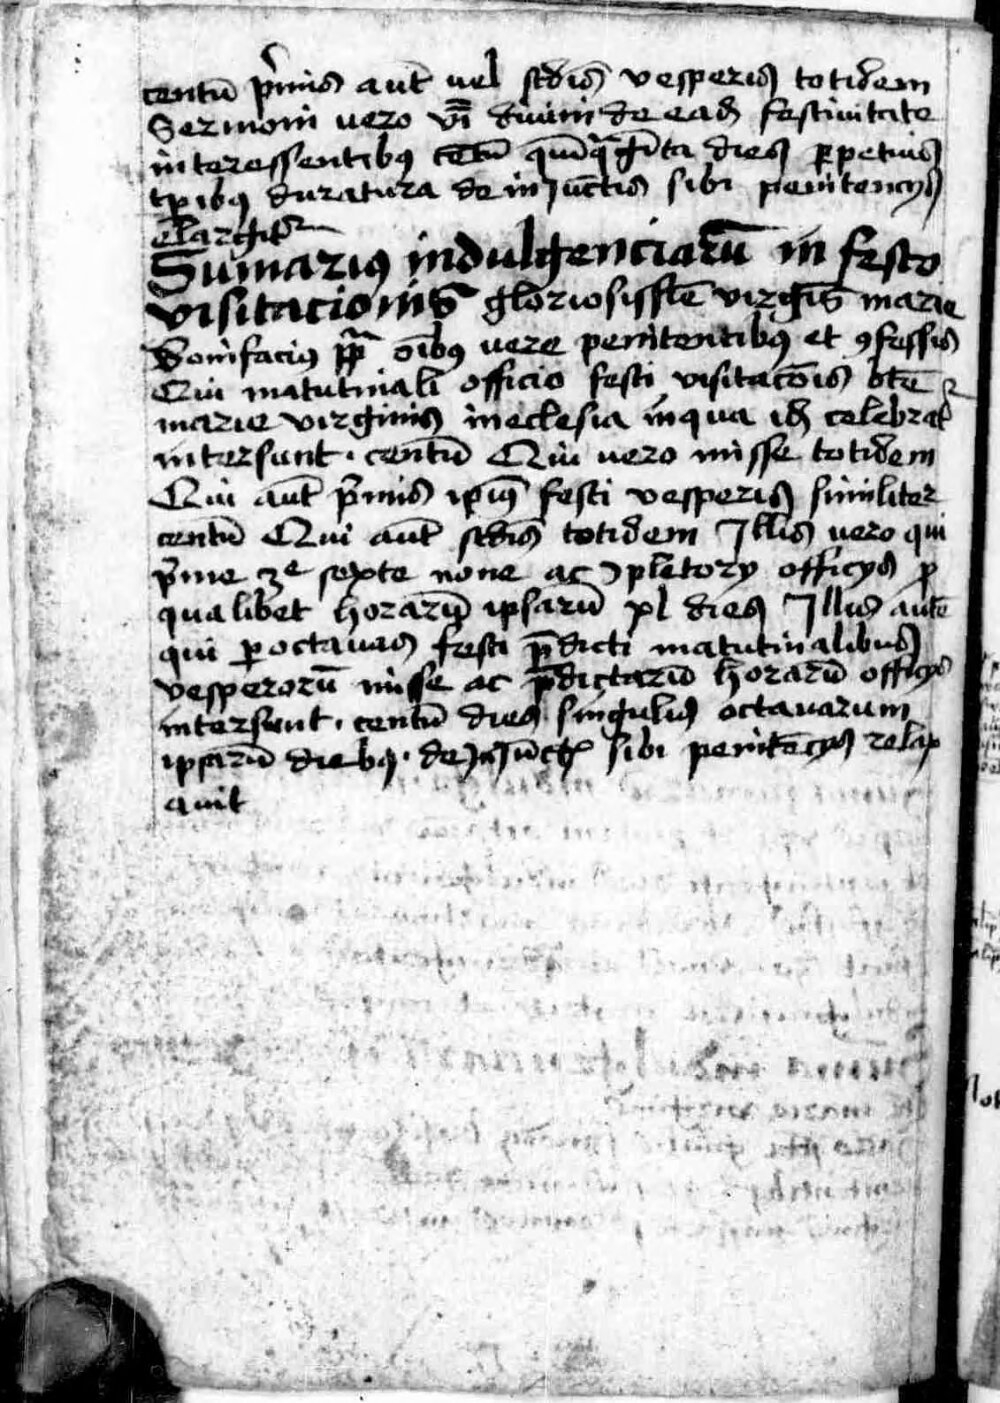 centū p̄mis aut̄ uel scdis vesperis totidem
Sermoni vero dīuini de eadē festiuitate
interessentibus centū quīquagīta dies ꝑpetuis
tp̄ibus duratura de iniūctis sibi penitencijs
elargitur
Sumarius indulgenciarū in festo
visitacionis gloriosissīe virgīs marie
Bonifacius pp̄ oībus vere penitentibus et ꝯfessis
Qui matutinali officio festi visitacōis btē
marie virginis in eclesia in qua ih celebratur
intersunt · centū Qui vero misse totidem
Qui aut̄ p̄mis ip̄ius festi vesperis similiter
centū Qui aut̄ scdis totidem Illis vero qui
p̄me 3e sexte none ac ꝯpletorij officijs pro
qualibet horarū ipsarū xl dies Illis autē
qui ꝑ octauas festi p̄dicti matutinalibus
vesperorū misse ac p̄dictarū horarū officijs
intersunt · centū dies singulis octauarum
ipsarū diebus · de iniūctis sibi penitēcijs relax
auit